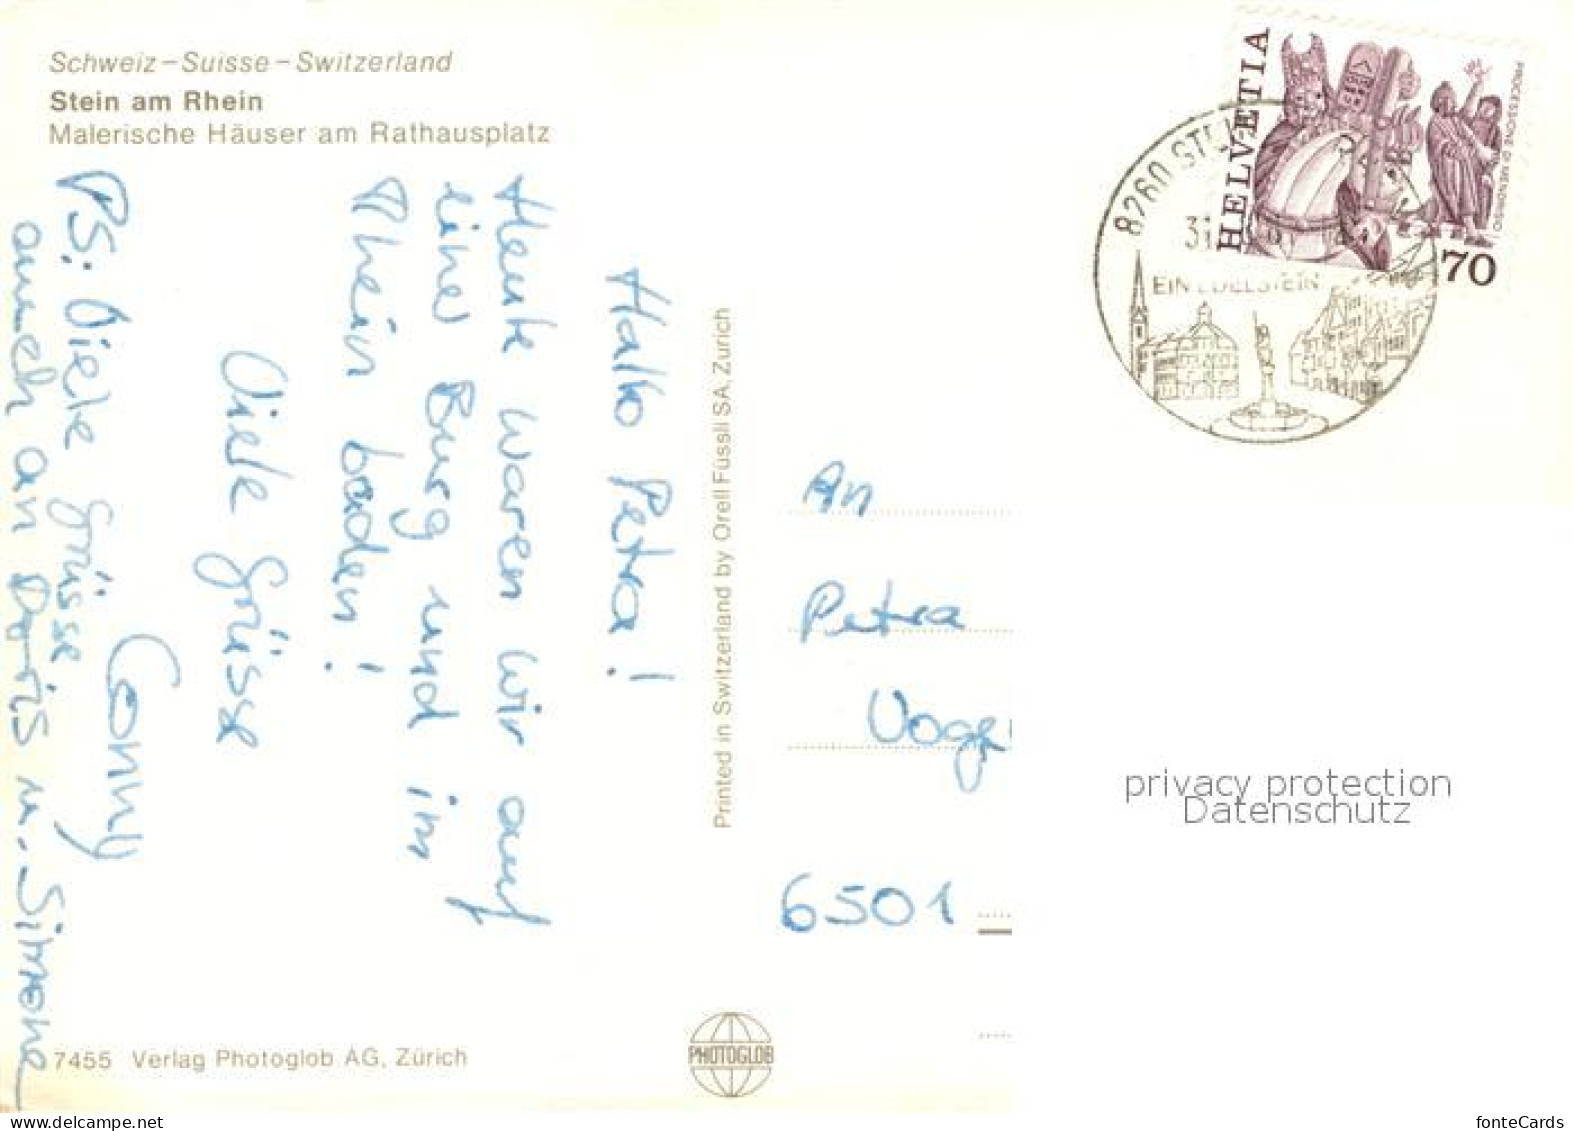 Schweiz – Suisse – Switzerland
Stein am Rhein
Malerische Häuser am Rathausplatz
Hallo Petra!
Heute waren wir auf
einer Burg und im
Rhein baden!
Viele Grüsse
Conny
PS: Viele Grüsse
auch an Doris u. Simone
7455 Verlag Photoglob AG, Zürich
Printed in Switzerland by Orell Füssli SA, Zürich
PHOTOGLOB
HELVETIA
PROCESSIONE DI MENDRISIO
70
8260
31
EIN EDELSTEIN
An
Petra
6501
privacy protection
Datenschutz
delcampe.net
fonteCards